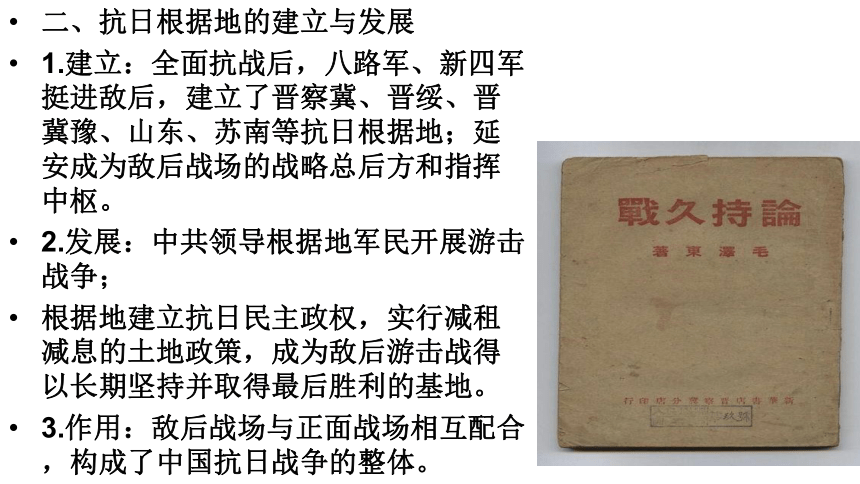 • 二、抗日根据地的建立与发展
• 1.建立：全面抗战后，八路军、新四军
挺进敌后，建立了晋察冀、晋绥、晋
冀豫、山东、苏南等抗日根据地；延
安成为敌后战场的战略总后方和指挥
中枢。
• 2.发展：中共领导根据地军民开展游击
战争；
• 根据地建立抗日民主政权，实行减租
减息的土地政策，成为敌后游击战得
以长期坚持并取得最后胜利的基地。
• 3.作用：敌后战场与正面战场相互配合
，构成了中国抗日战争的整体。
戰久持論
著 東 澤 毛
行印店分察晉店書華新